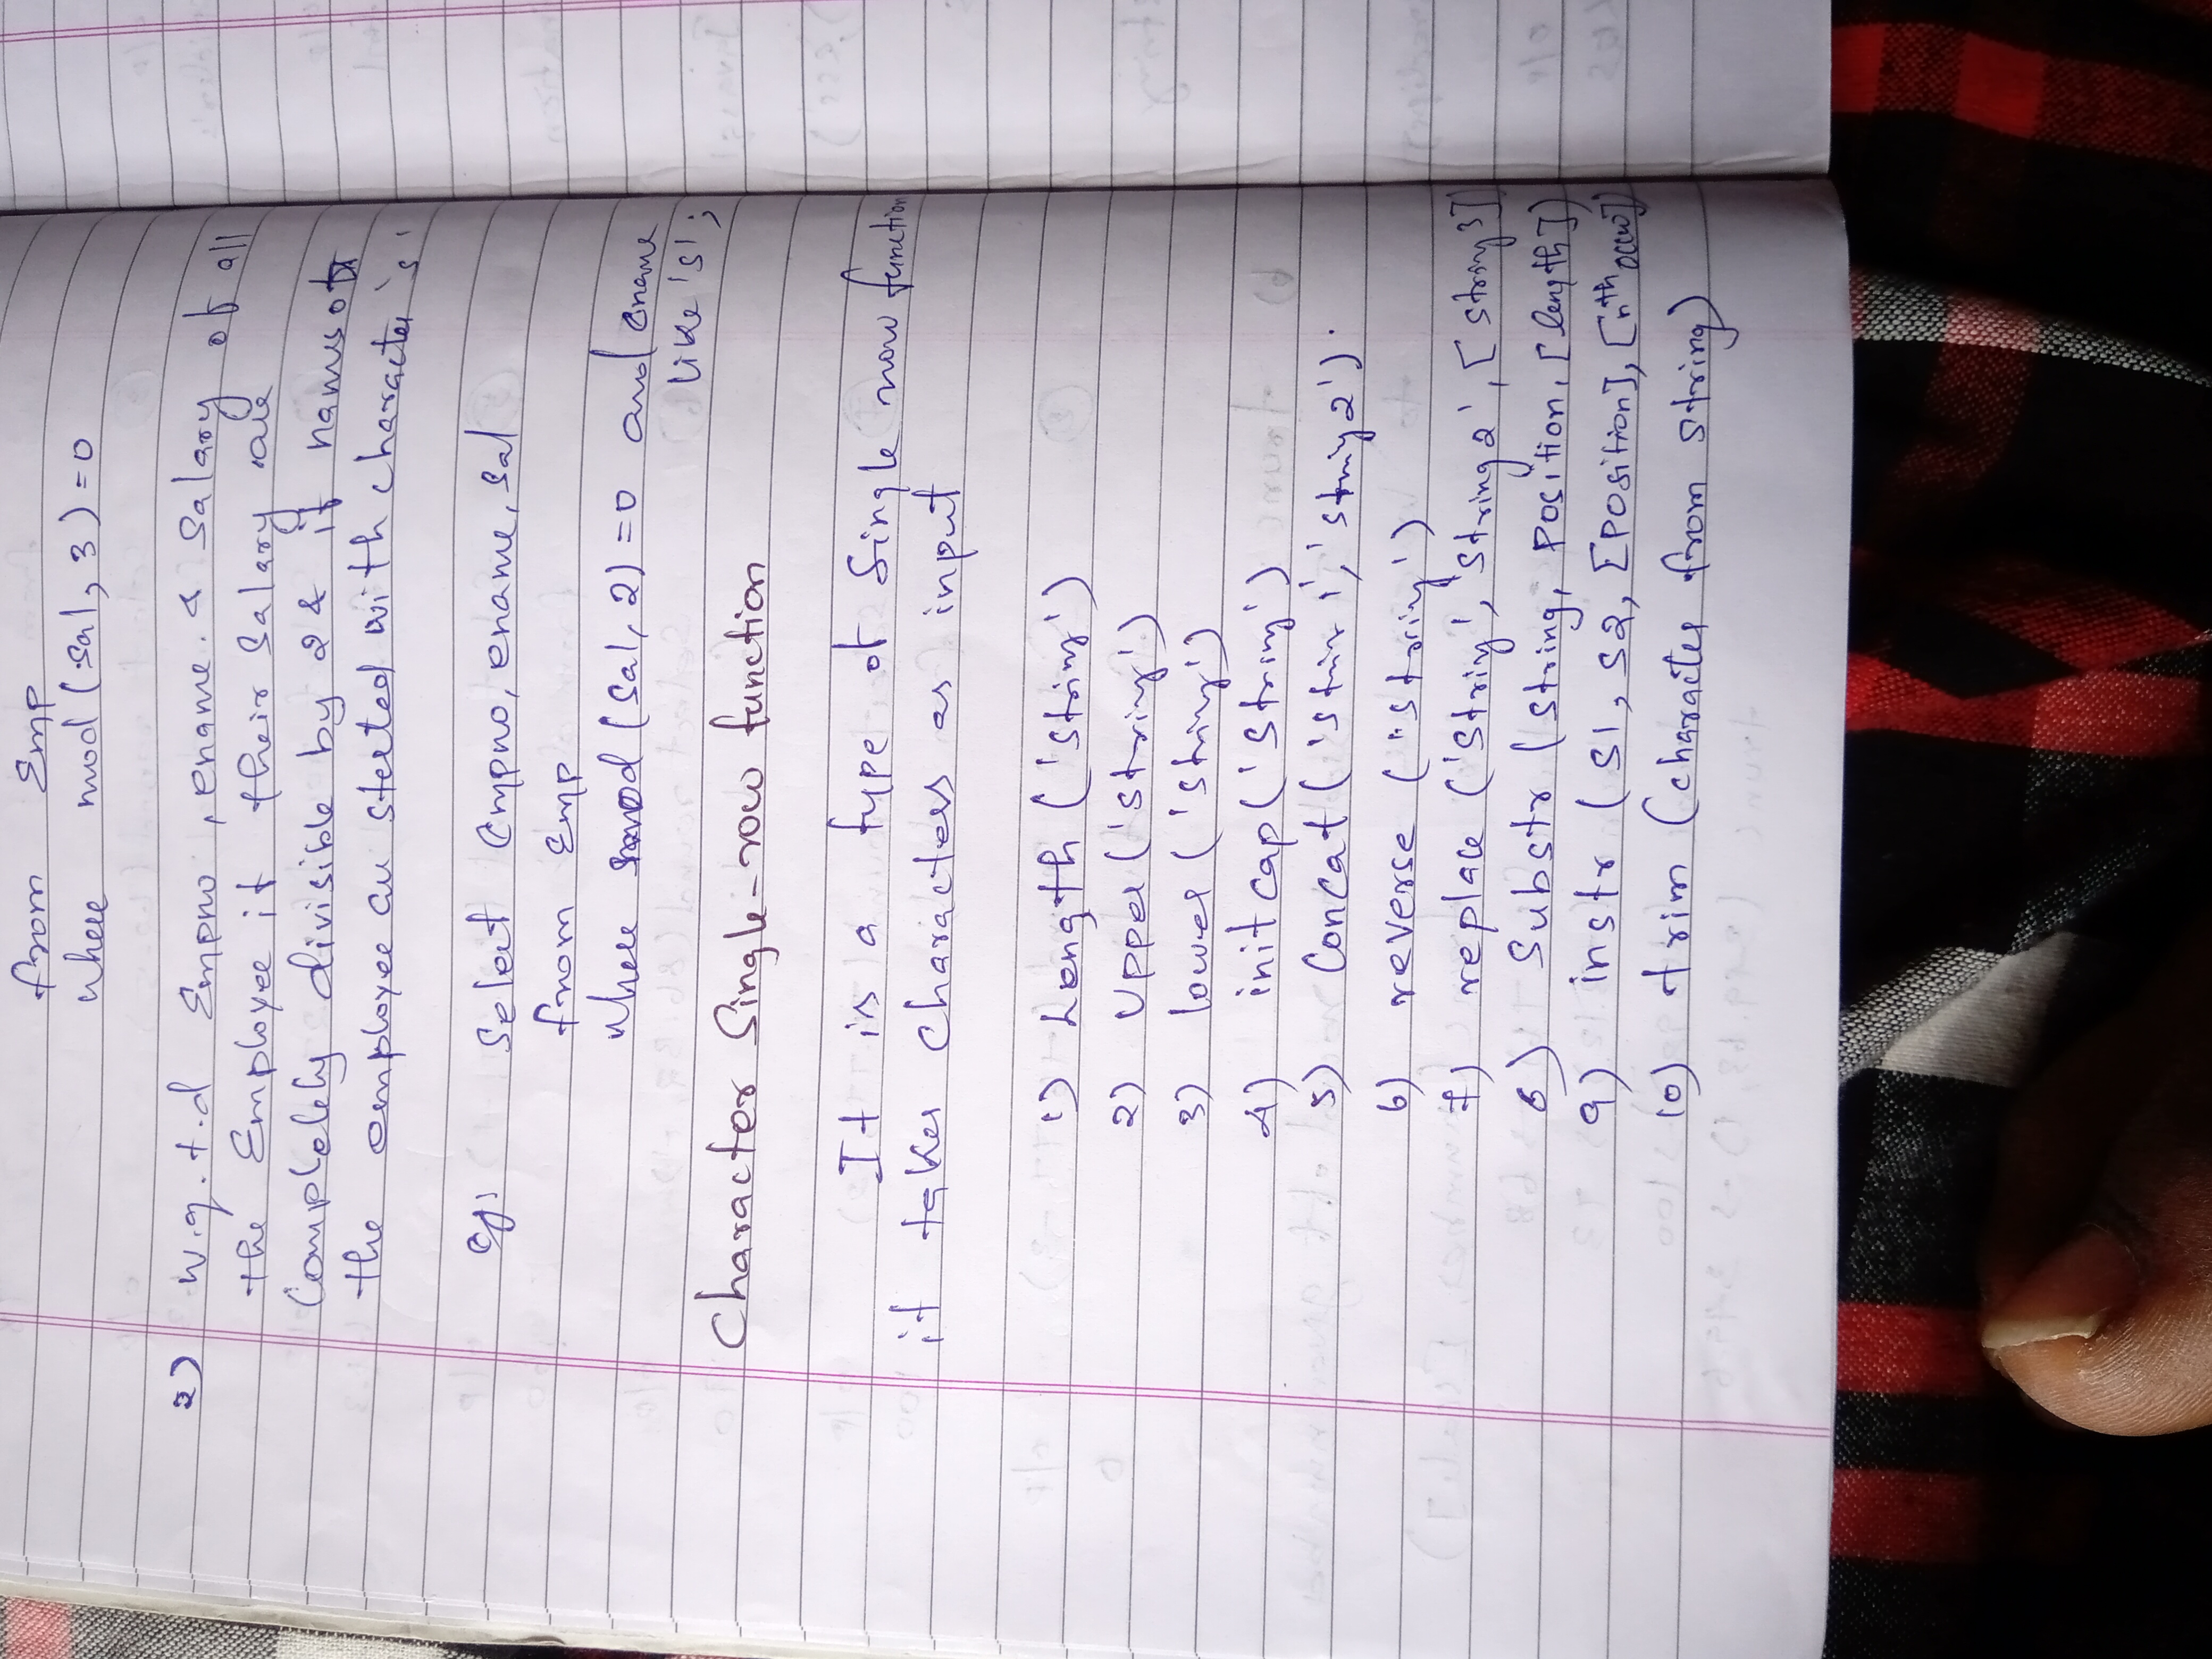 from emp
where mod(sal, 3)=0
2) W.q.t.d Empno, ename. & Salary of all
the Employee if their Salary are
Completely divisible by 2 & if names of
the employee are started with character 's'
eg: Select Empno, ename, sal
from emp
where mod(sal, 2)=0 and ename
like 's';
Character Single-row function
It is a type of Single row function
it takes characters as input
1) Length ('string')
2) Upper ('string')
3) lower ('string')
4) initcap('string')
5) Concat('strin 1', 'string2').
6) reverse ('string')
7) replace ('string', 'string2', [string3]
8) Substr (string, position, [length])
9) instr (S1, S2, [Position], [nth occur])
10) trim (character from string)